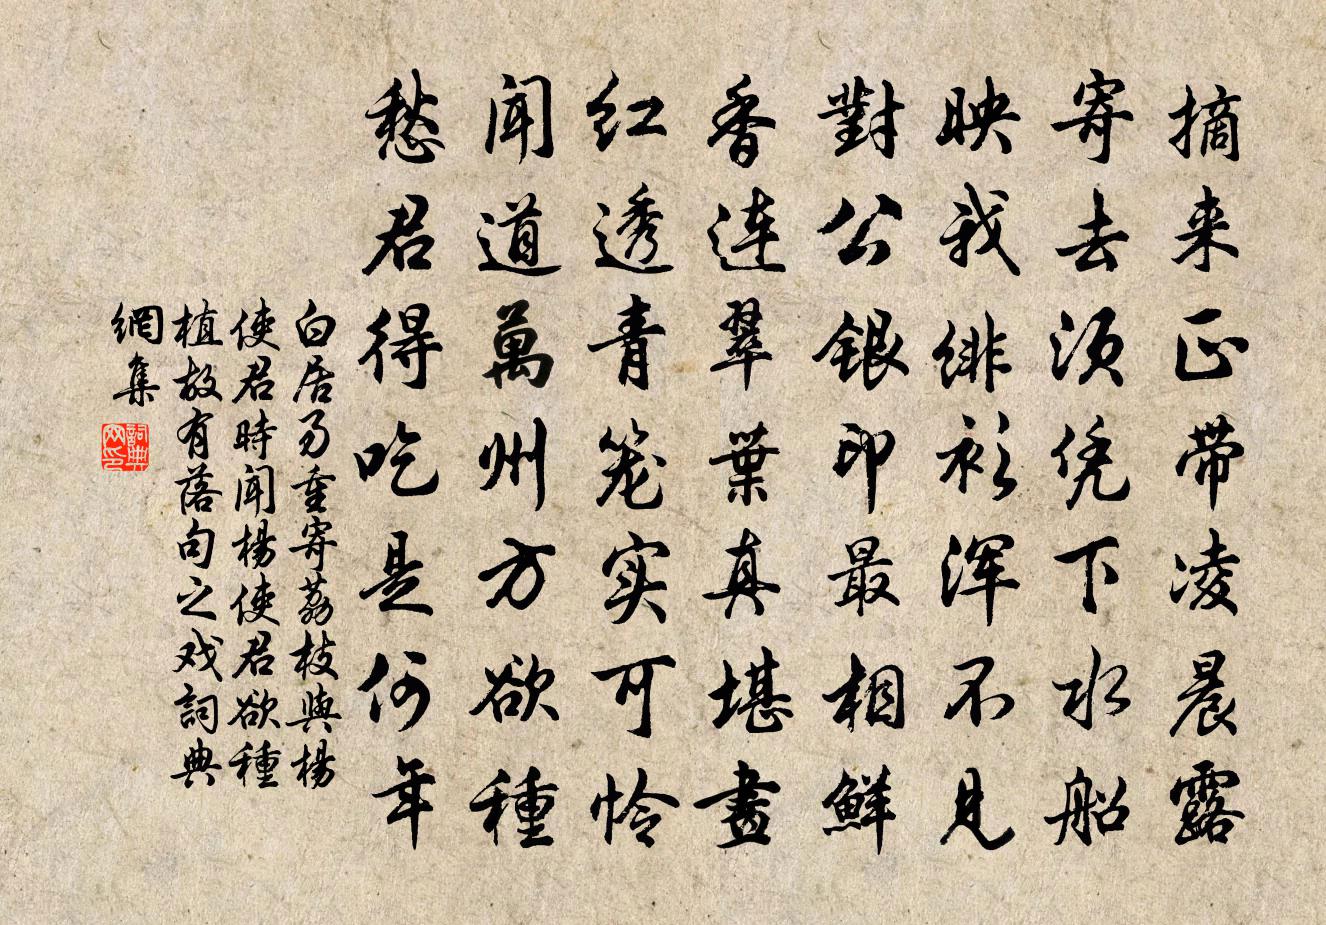 摘来正带凌晨露
寄去须凭下水船
映我绯衫浑不見
對公銀印最相鮮
香連翠葉真堪畫
红透青笼实可怜
闻道萬州方欲種
愁君得吃是何年
白居易重寄荔枝與楊
使君時闻楊使君欲種
植故有落句之戏詞典
網集
詞典网印